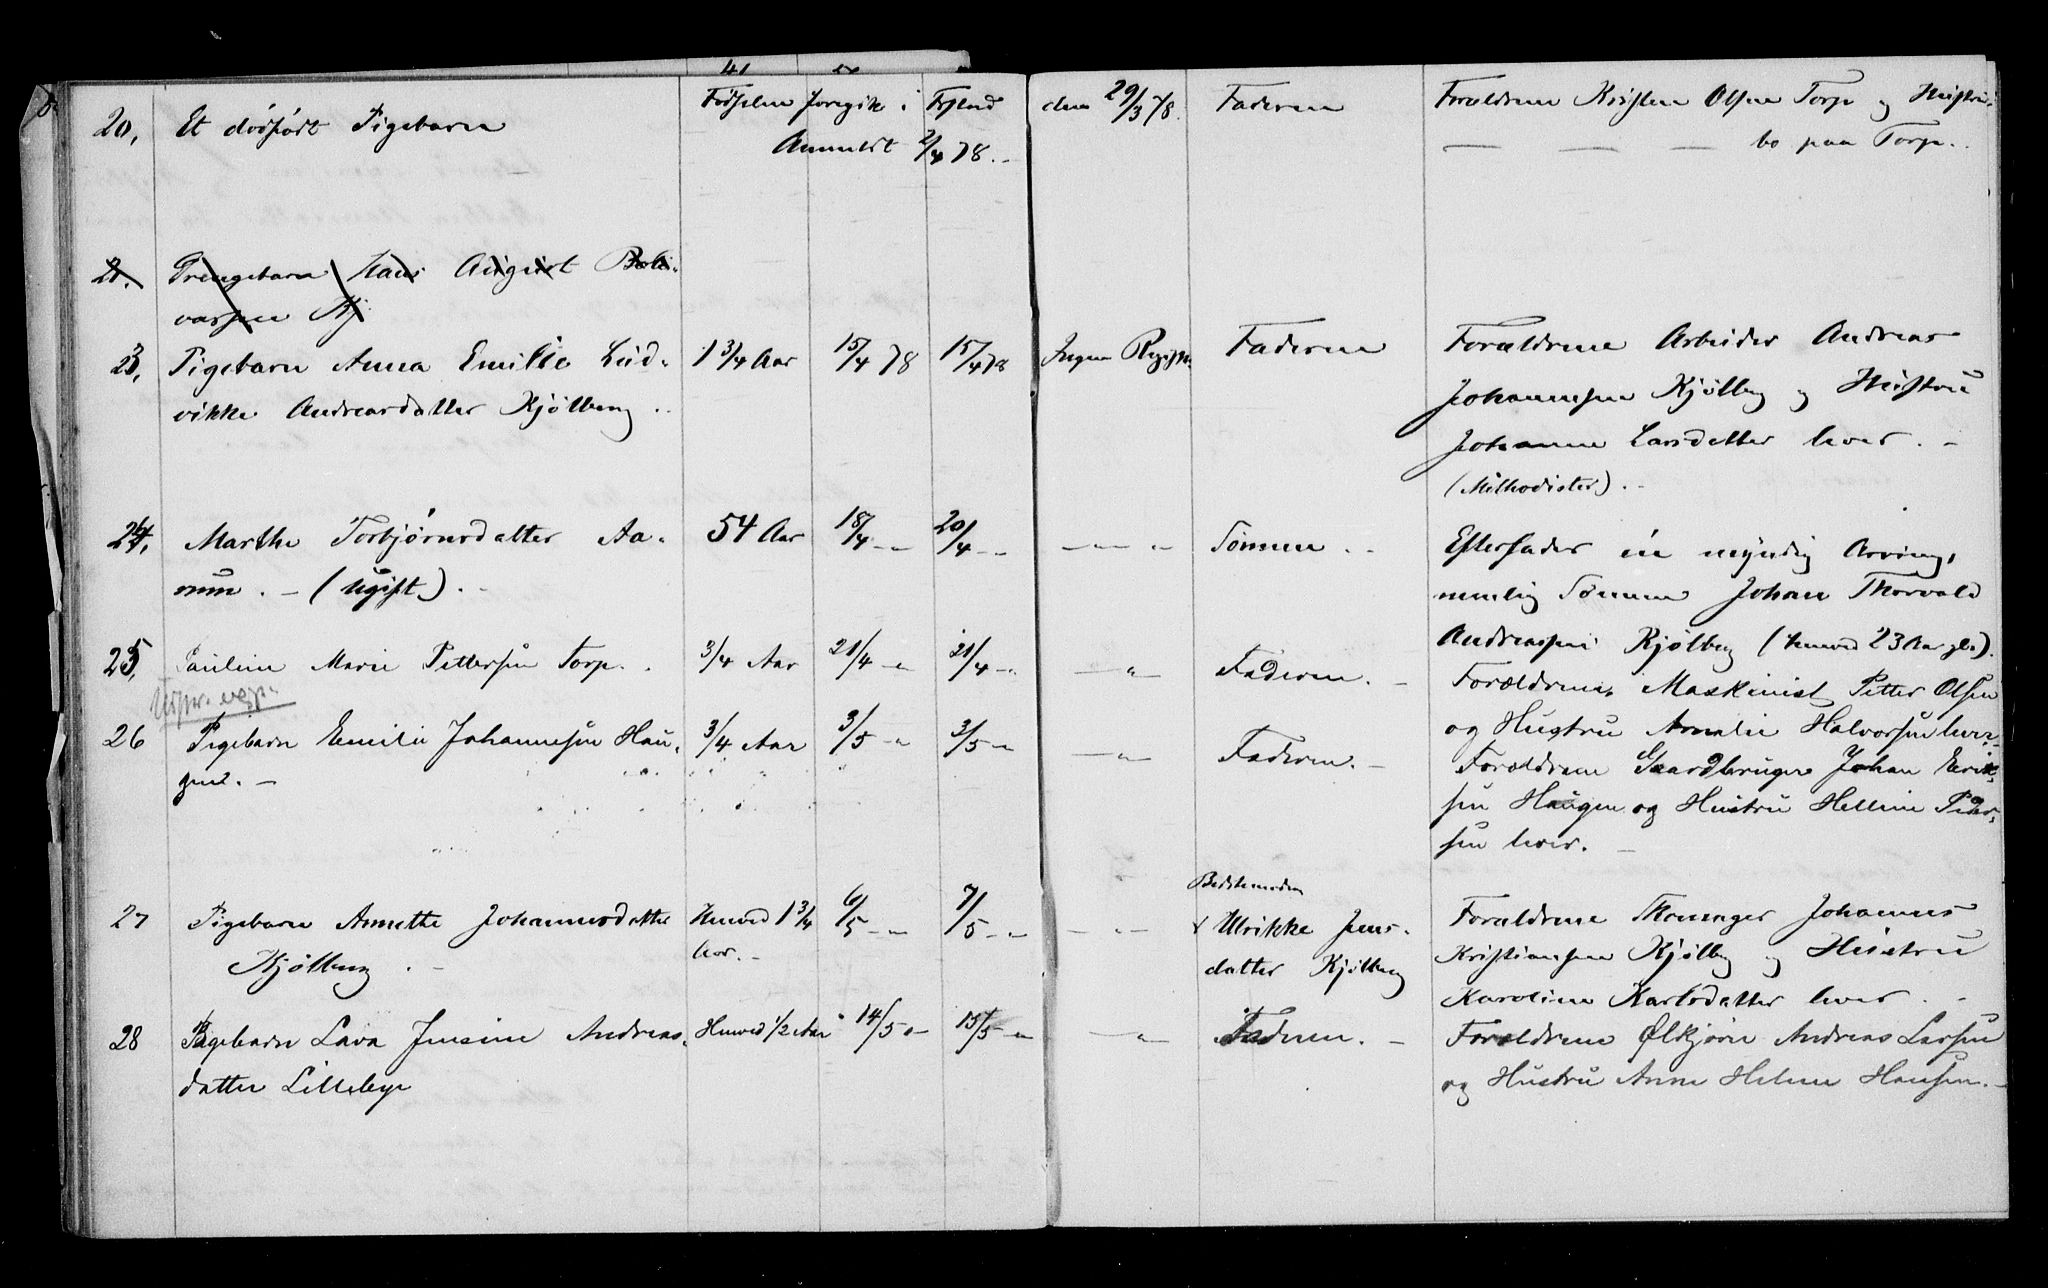 20, Et dødfødt Pigebarn
Fødselen foregik i
den 29/3 78.
Anmeldt 2/4 78.
Faderen
Forældrene Kristen Olsen Torp og Hustru
bo paa Torp.
21. Drengebarn Hans August
23, Pigebarn Anna Emilie Lud-
vikke Andreasdatter Kjølberg
1 3/4 Aar
15/4 78
15/4 78
Ingen Registr.
Faderen
Forældrene Arbeider Andreas
Johannesen Kjølberg og Hustru
Johanne Larsdatter lever. -
(Methodister). -
24, Marthe Torbjørnsdatter Aa-
rum. - (ugift). -
54 Aar
18/4 - "
20/4 - "
- " -
Sønnen. -
Efterlader én myndig Arving,
nemlig Sønnen Johan Thorvald
Andreassen Kjølberg (henved 23 Aar gl.).
25, Pauline Marie Pettersen Torp.
3/4 Aar
21/4 - "
21/4 - "
- " -
Faderen. -
Forældrene, Maskinist Petter Olsen
og Hustru Amalie Halvorsen lever. -
26 Pigebarn Emilie Johannesen Hau-
gen. -
3/4 Aar
3/5 - "
3/5 - "
- " -
Faderen. -
Forældrene Gaardbruger Johan Erik-
sen Haugen og Hustru Helline Peder-
sen lever. -
27 Pigebarn Annette Johannesdatter
Kjølberg. -
Henved 1 3/4
Aar. -
6/5 - "
7/5 - "
- " -
Bedstemoderen
Ulrikke Jens-
datter Kjølberg
Forældrene Johannes
Kristiansen Kjølberg og Hustru
Karoline Karlsdatter lever. -
28 Pigebarn Lava Jensine Andreas-
datter Lilleby
Henved 1/2 Aar
14/5 - "
15/5 - "
- " -
Faderen. -
Forældrene Ølkjører Andreas Larsen
og Hustru Anne Helene Hansen. -